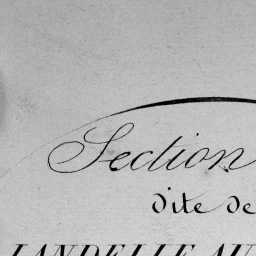 Section
dite de
LANDELLE AU